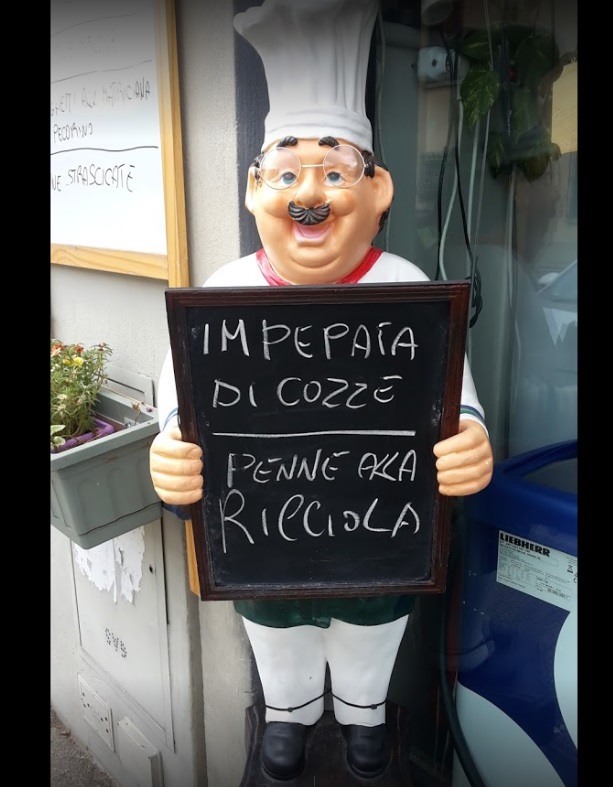 ALLA MATRICIANA
PECORINO
STRASCICATE
IMPEPATA
DI COZZE
PENNE ALLA
RICCIOLA
LIEBHERR